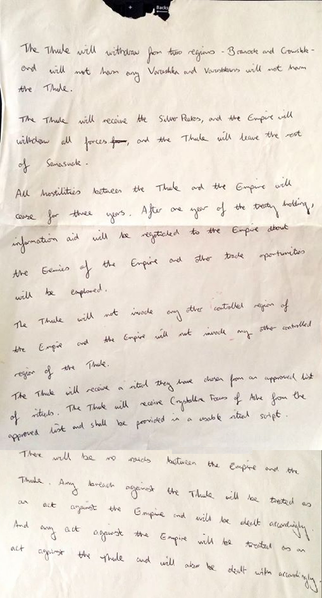 Backsp
The Thule will withdraw from two regions -
and will not harm any Varushka and Varushkans will not harm
the Thule.
The Thule will receive the Silver Peaks, and the Empire will
withdraw all forces, and the Thule will leave the rest
of Sermersuaq.
All hostilities between the Thule and the Empire will
cease for three years. After one year of the treaty holding,
information aid will be negotiated to the Empire about
the Enemies of the Empire and other trade oportunities
will be explored.
The Thule will not invade any other controlled region of
the Empire and the Empire will not invade any other controlled
region of the Thule.
The Thule will receive a ritual they have chosen from an approved list
of rituals. The Thule will receive Crystalline Focus of Aesh from the
approved list and shall be provided in a usable ritual script.
There will be no raids between the Empire and the
Thule. Any breach against the Thule will be treated as
an act against the Empire and will be dealt accordingly.
And any act against the Empire will be treated as an
act against the Thule and will also be dealt with accordingly.